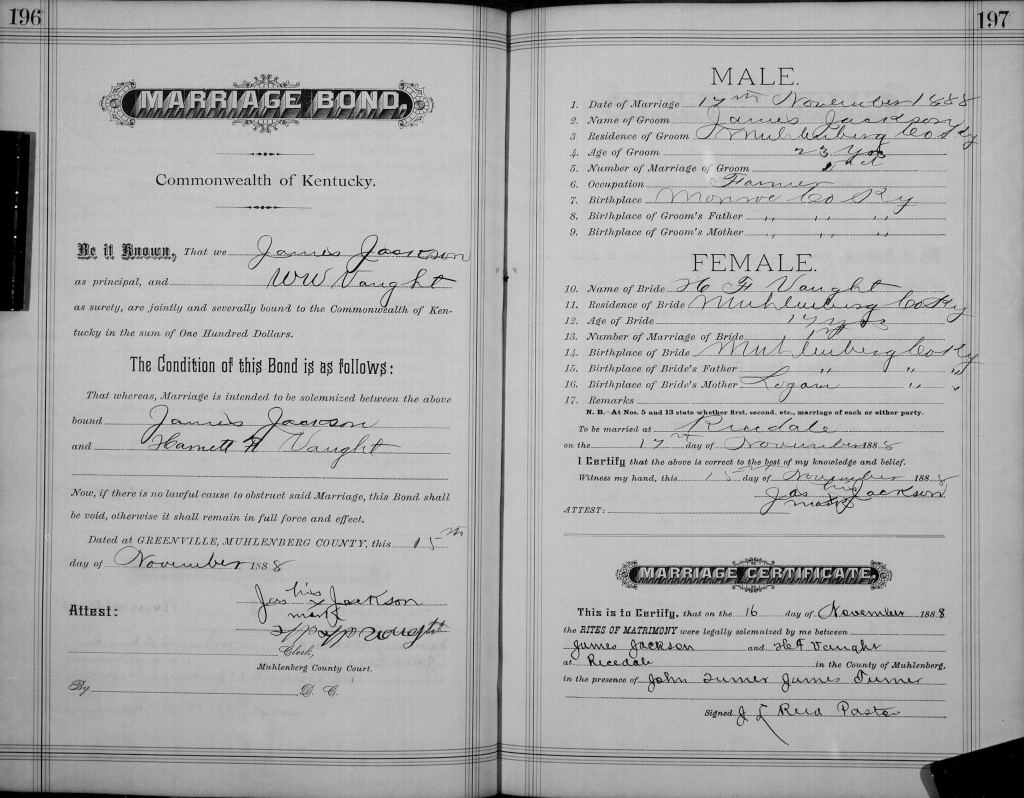 196
MARRIAGE BOND,
Commonwealth of Kentucky.
Be it Known, That we James Jackson
as principal, and WW Vaught
as surety, are jointly and severally bound to the Commonwealth of Ken-
tucky in the sum of One Hundred Dollars.
The Condition of this Bond is as follows:
That whereas, Marriage is intended to be solemnized between the above
bound James Jackson
and Harriett F Vaught
Now, if there is no lawful cause to obstruct said Marriage, this Bond shall
be void, otherwise it shall remain in full force and effect.
Dated at GREENVILLE, MUHLENBERG COUNTY, this 15th
day of November 1888
Attest:
his
Jas x Jackson
mark
Vaught
Clerk,
Muhlenberg County Court.
By D. C.
197
MALE.
1. Date of Marriage 17th November 1888
2. Name of Groom James Jackson
3 Residence of Groom Muhlenberg Co Ky
4. Age of Groom 23 Yrs
5. Number of Marriage of Groom
6. Occupation Farmer
7. Birthplace Monroe Co Ky
8. Birthplace of Groom's Father " " "
9. Birthplace of Groom's Mother " " "
FEMALE.
10. Name of Bride H F Vaught
11. Residence of Bride Muhlenberg Co Ky
12. Age of Bride 17 yrs
13. Number of Marriage of Bride
14. Birthplace of Bride Muhlenberg Co Ky
15. Birthplace of Bride's Father " " "
16. Birthplace of Bride's Mother Logan " "
17. Remarks
N. B.—At Nos. 5 and 13 state whether first, second, etc., marriage of each or either party.
To be married at Ricedale
on the 17th day of November 1888
I Certify that the above is correct to the best of my knowledge and belief.
Witness my hand, this 15 day of November 1888
his
Jas x Jackson
mark
ATTEST:
MARRIAGE CERTIFICATE.
This is to Certify, that on the 16 day of November 1888
the RITES OF MATRIMONY were legally solemnized by me between
James Jackson and H F Vaught
at Ricedale in the County of Muhlenberg,
in the presence of John Turner James Turner
Signed J L Reid Pastor